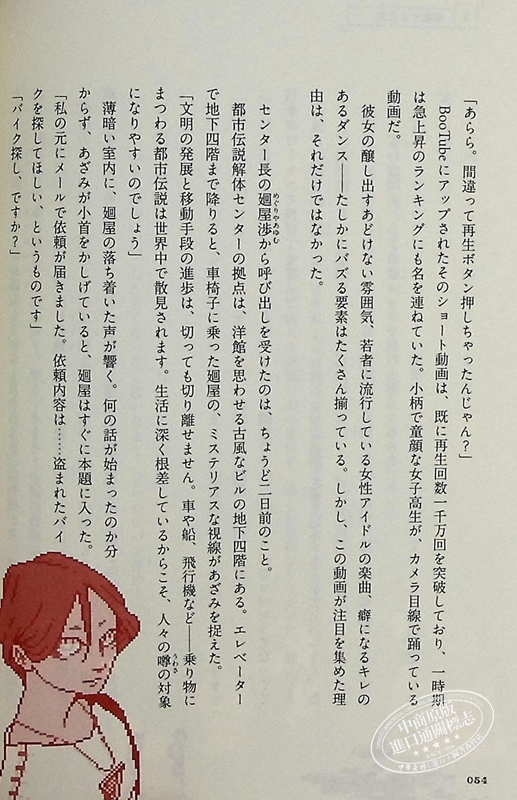 「あらら。間違って再生ボタン押しちゃったんじゃん？」
BooTubeにアップされたそのショート動画は、既に再生回数一千万回を突破しており、一時期
は急上昇のランキングにも名を連ねていた。小柄で童顔な女子高生が、カメラ目線で踊っている
動画だ。
彼女の醸し出すあどけない雰囲気、若者に流行している女性アイドルの楽曲、癖になるキレの
あるダンス――たしかにバズる要素はたくさん揃っている。しかし、この動画が注目を集めた理
由は、それだけではなかった。
センター長の廻屋渉から呼び出しを受けたのは、ちょうど二日前のこと。
めぐりやあゆむ
都市伝説解体センターの拠点は、洋館を思わせる古風なビルの地下四階にある。エレベーター
で地下四階まで降りると、車椅子に乗った廻屋の、ミステリアスな視線があざみを捉えた。
「文明の発展と移動手段の進歩は、切っても切り離せません。車や船、飛行機など――乗り物に
まつわる都市伝説は世界中で散見されます。生活に深く根差しているからこそ、人々の噂の対象
うわさ
になりやすいのでしょう」
薄暗い室内に、廻屋の落ち着いた声が響く。何の話が始まったのか分
からず、あざみが小首をかしげていると、廻屋はすぐに本題に入った。
「私の元にメールで依頼が届きました。依頼内容は……盗まれたバイ
クを探してほしい、というものです」
「バイク探し、ですか？」
054
中商原版
進口通關標志